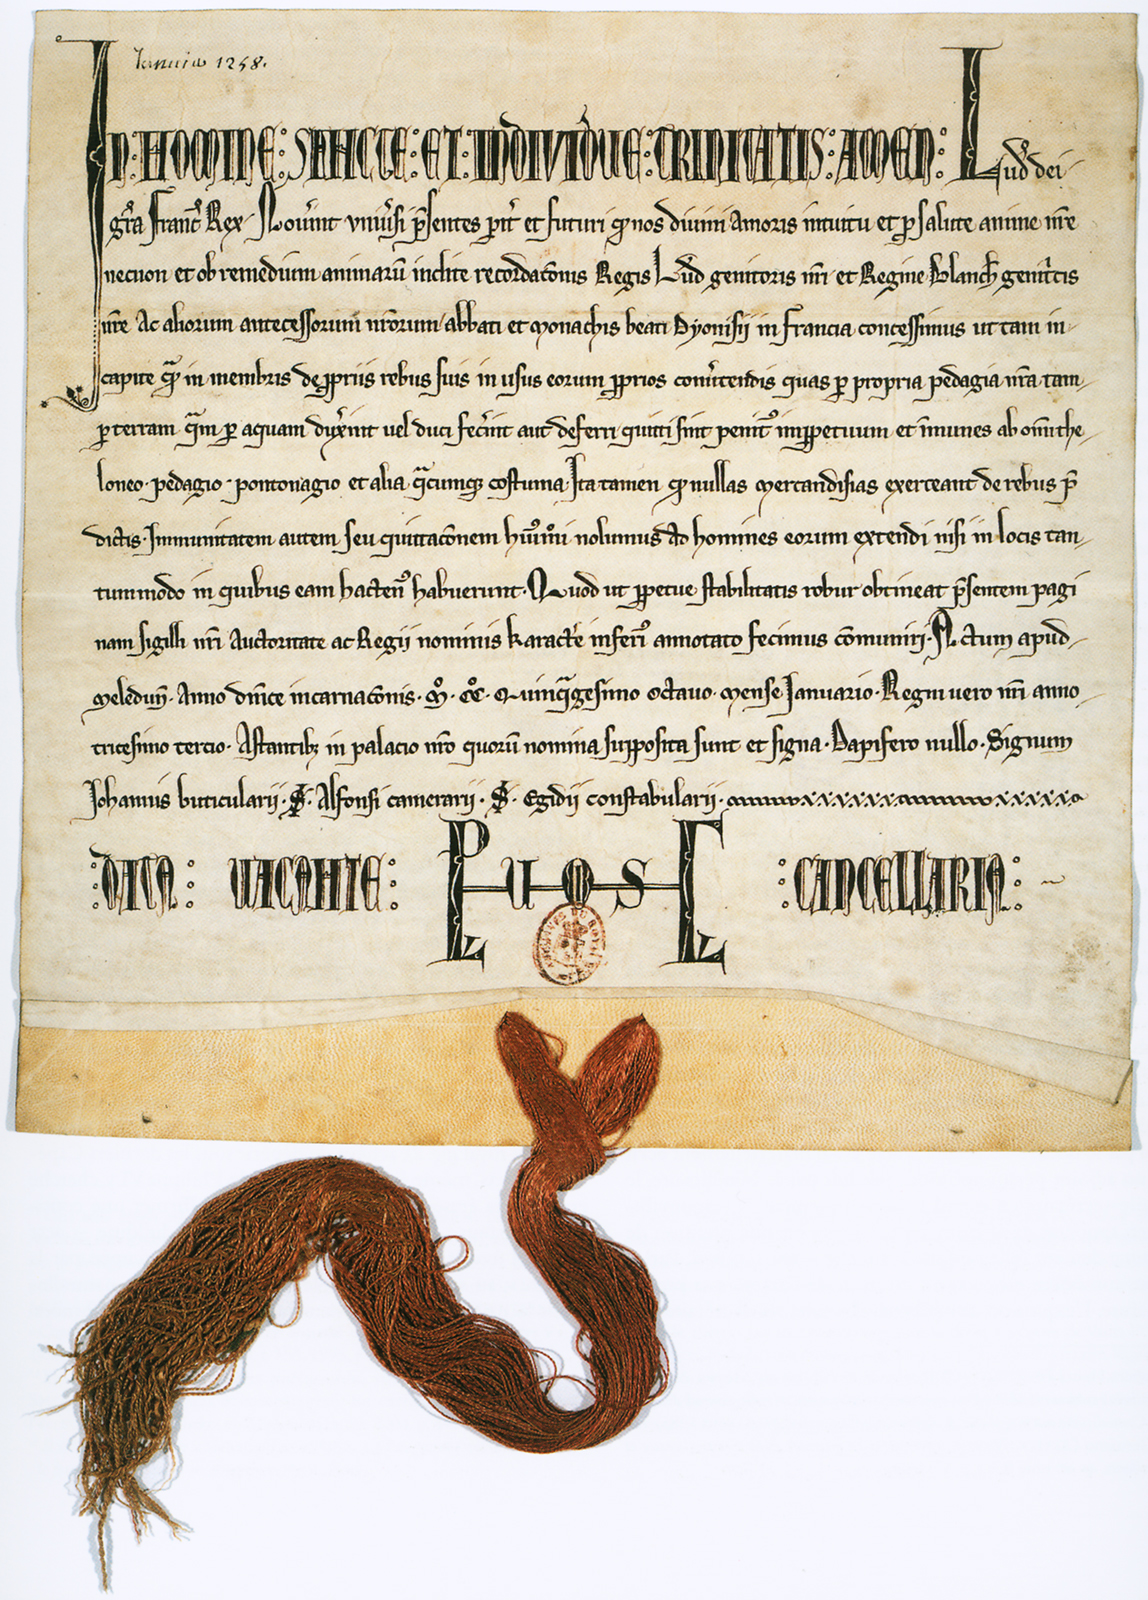 Januia 1258.
IN: NOMINE: SANCTE: ET: INDIVIDUE: TRINITATIS: AMEN: Lud' dei
gr̃a Franc' Rex. Noverint univ'si p̃sentes p̃it' et futuri q̃ nos divini Amoris intuitu et p̱ salute anime nr̃e
necnon et ob remedium animarũ inclite recordac̃onis Regis Lud' genitoris nr̃i et Regine Blanch' genit'cis
nr̃e Ac aliorum antecessorum nr̃orum abbati et Monachis beati Dyonisii in Francia concessimus ut tam in
capite q̃ in membris de p̱priis rebus suis in usus eorum p̱prios conv'tendis quas p̱ propria pedagia nr̃a tam
p̱ terram q̃m p̱ aquam dux'int vel duci fec'int aut deferri quitti sint penit' imp̱petuum et ĩmunes ab om̃i the
loneo. pedagio. pontonagio et alia q̃cumq; costuma. Ita tamen q̃ nullas Mercandisias exerceant de rebus p̃
dictis. Immunitatem autem seu quittac̃onem hui'mi nolumus Ad homines eorum extendi nisi in locis tan
tummodo in quibus eam hacten' habuerunt. Quod ut p̱petue stabilitatis robur obtineat p̃sentem pagi
nam sigilli nr̃i Auctoritate ac Regii nominis karact'e inferi' annotato fecimus com̃uniri. Actum apud
Meledun̄. Anno dñice incarnac̃onis. M̊. CC̊. Quinq̃gesimo Octavo. Mense Januario. Regni vero nr̃i anno
tricesimo tercio. Astantib; in palacio nr̃o quorũ nomina supposita sunt et signa. Dapifero nullo. Signum
Johannis buticularii. S̃. Alfonsi camerarii. S̃. Egidii constabularii.
:DATA: VACANTE: LUDOVICUS :CANCELLARIA: